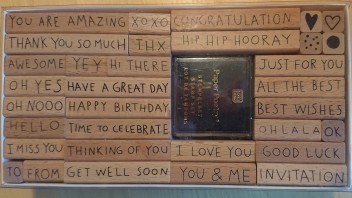 YOU ARE AMAZING XOXO CONGRATULATION
THANK YOU SO MUCH THX HIP HIP HOORAY
AWESOME YEY HI THERE JUST FOR YOU
OH YES HAVE A GREAT DAY ALL THE BEST
OH NOOO HAPPY BIRTHDAY BEST WISHES
HELLO TIME TO CELEBRATE OHLALA OK
I MISS YOU THINKING OF YOU I LOVE YOU GOOD LUCK
TO FROM GET WELL SOON YOU & ME INVITATION